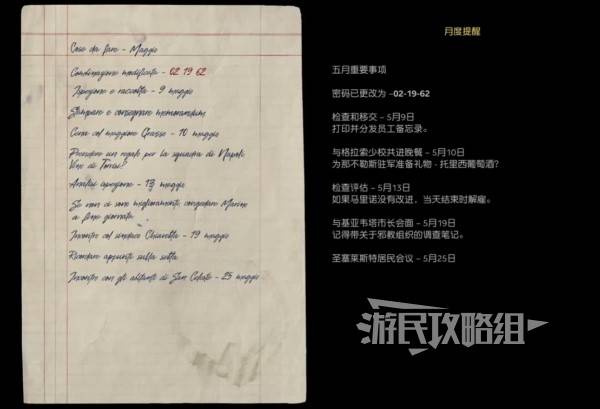 Cose da fare - Maggio
Combinazione modificata - 02 19 62
Ispezione e raccolta - 9 maggio
Stampare e consegnare memorandum
Cena col maggiore Grasso - 10 maggio
Prendere un regalo per la squadra di Napoli
Vino di Torrisi?
Analisi ispezione - 13 maggio
Se non ci sono miglioramenti, congedare Marino
a fine giornata
Incontro col sindaco Chiavetta - 19 maggio
Ricordare appunti sulla setta
Incontro con gli abitanti di San Celeste - 25 maggio
月度提醒
五月重要事项
密码已更改为 –02-19-62
检查和移交 – 5月9日
打印并分发员工备忘录。
与格拉索少校共进晚餐 – 5月10日
为那不勒斯驻军准备礼物 - 托里西葡萄酒?
检查评估 – 5月13日
如果马里诺没有改进，当天结束时解雇。
与基亚韦塔市长会面 – 5月19日
记得带关于邪教组织的调查笔记。
圣塞莱斯特居民会议 – 5月25日
游民攻略组